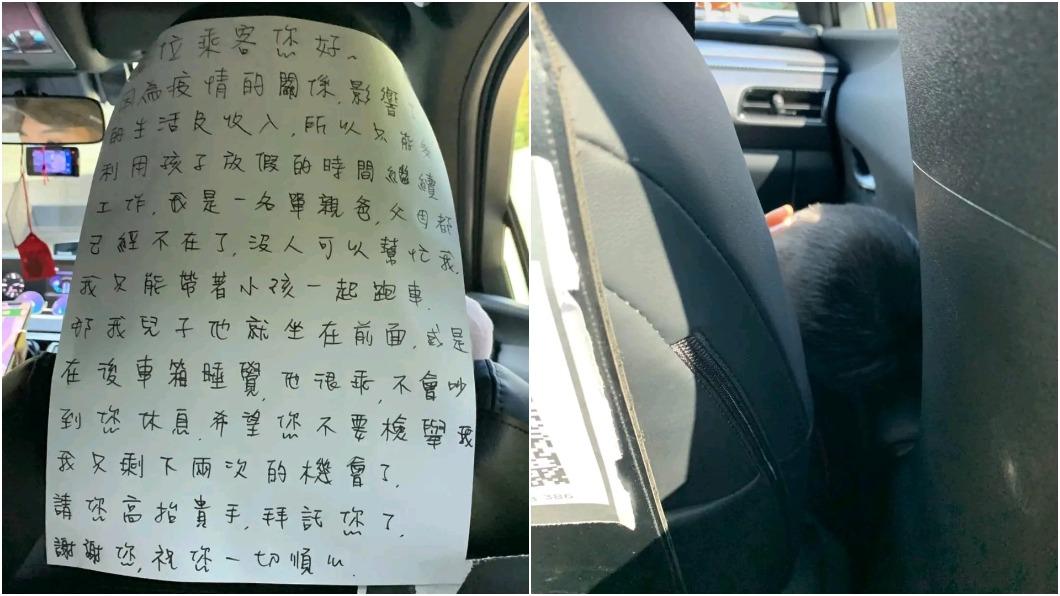 位乘客您好~
因為疫情的關係,影響
的生活及收入,所以只能
利用孩子放假的時間繼續
工作,我是一名單親爸,父母都
已經不在了,沒人可以幫忙我.
我只能帶著小孩一起跑車.
那我兒子他就坐在前面,或是
在後車箱睡覺,他很乖,不會吵
到您休息.希望您不要檢舉我
我只剩下兩次的機會了.
請您高抬貴手,拜託您了.
謝謝您,祝您一切順心.
386